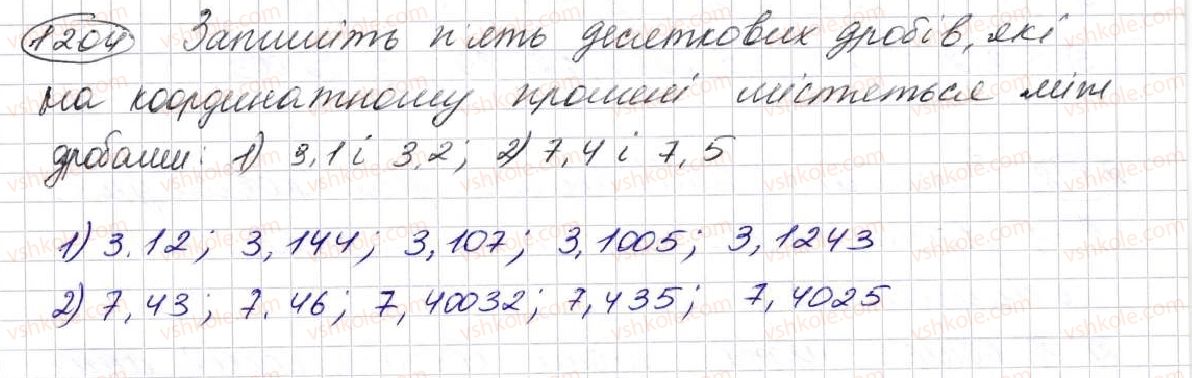 1204 Запишіть п'ять десяткових дробів, які
на координатному промені містяться між
дробами: 1) 3,1 і 3,2; 2) 7,4 і 7,5
1) 3.12; 3,144; 3,107; 3,1005; 3,1243
2) 7,43; 7.46; 7,40032; 7,435; 7,4025